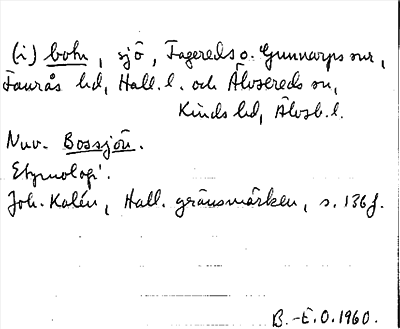 (i) botn, sjö, Fagereds o. Gunnarps snr,
Faurås hd, Hall. l. och Älvsereds sn,
Kinds hd, Älvsb. l.
Nuv. Bossjön.
Etymologi.
Joh. Kalén, Hall. gränsmärken, s. 136 f.
B.-E.O. 1960.